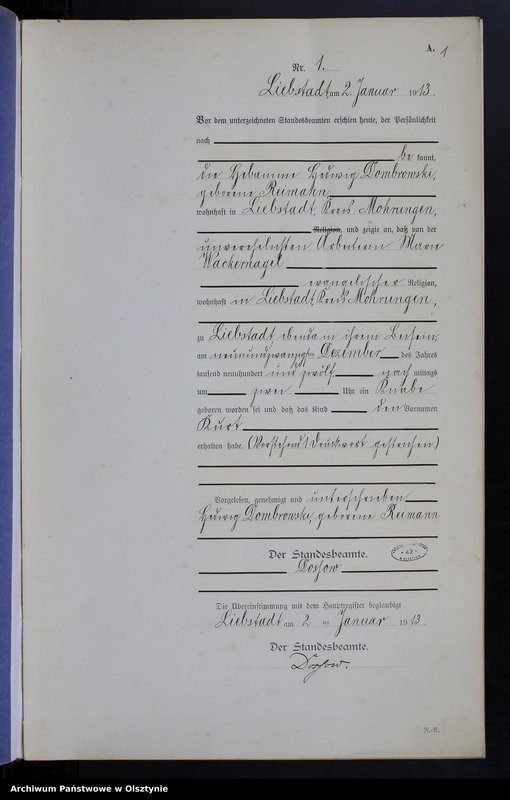 A. 1
Nr. 1.
Liebstadt, am 2 Januar 1913.
Vor dem unterzeichneten Standesbeamten erschien heute, der Persönlichkeit
nach
be kannt,
die Hebamme Hedwig Dombrowski,
geborene Reimann
wohnhaft in Liebstadt, Kreis Mohrungen,
Religion, und zeigte an, daß von der
unverehelichten Arbeiterin Marie
Wackernagel
evangelischer Religion,
wohnhaft in Liebstadt, Kreis Mohrungen,
zu Liebstadt, ebenda in ihrem Beisein,
am neunundzwanzigsten Dezember des Jahres
tausend neunhundert und zwölf nach mittags
um zwei Uhr ein Knabe
geboren worden sei und daß das Kind den Vornamen
Kurt
erhalten habe. (Vorstehend 1 Druckwort gestrichen)
Vorgelesen, genehmigt und unterschrieben
Hedwig Dombrowski, geborene Reimann
Der Standesbeamte.
Dossow
Die Übereinstimmung mit dem Hauptregister beglaubigt
Liebstadt am 2 ten Januar 1913.
Der Standesbeamte.
Dossow.
Archiwum Państwowe w Olsztynie